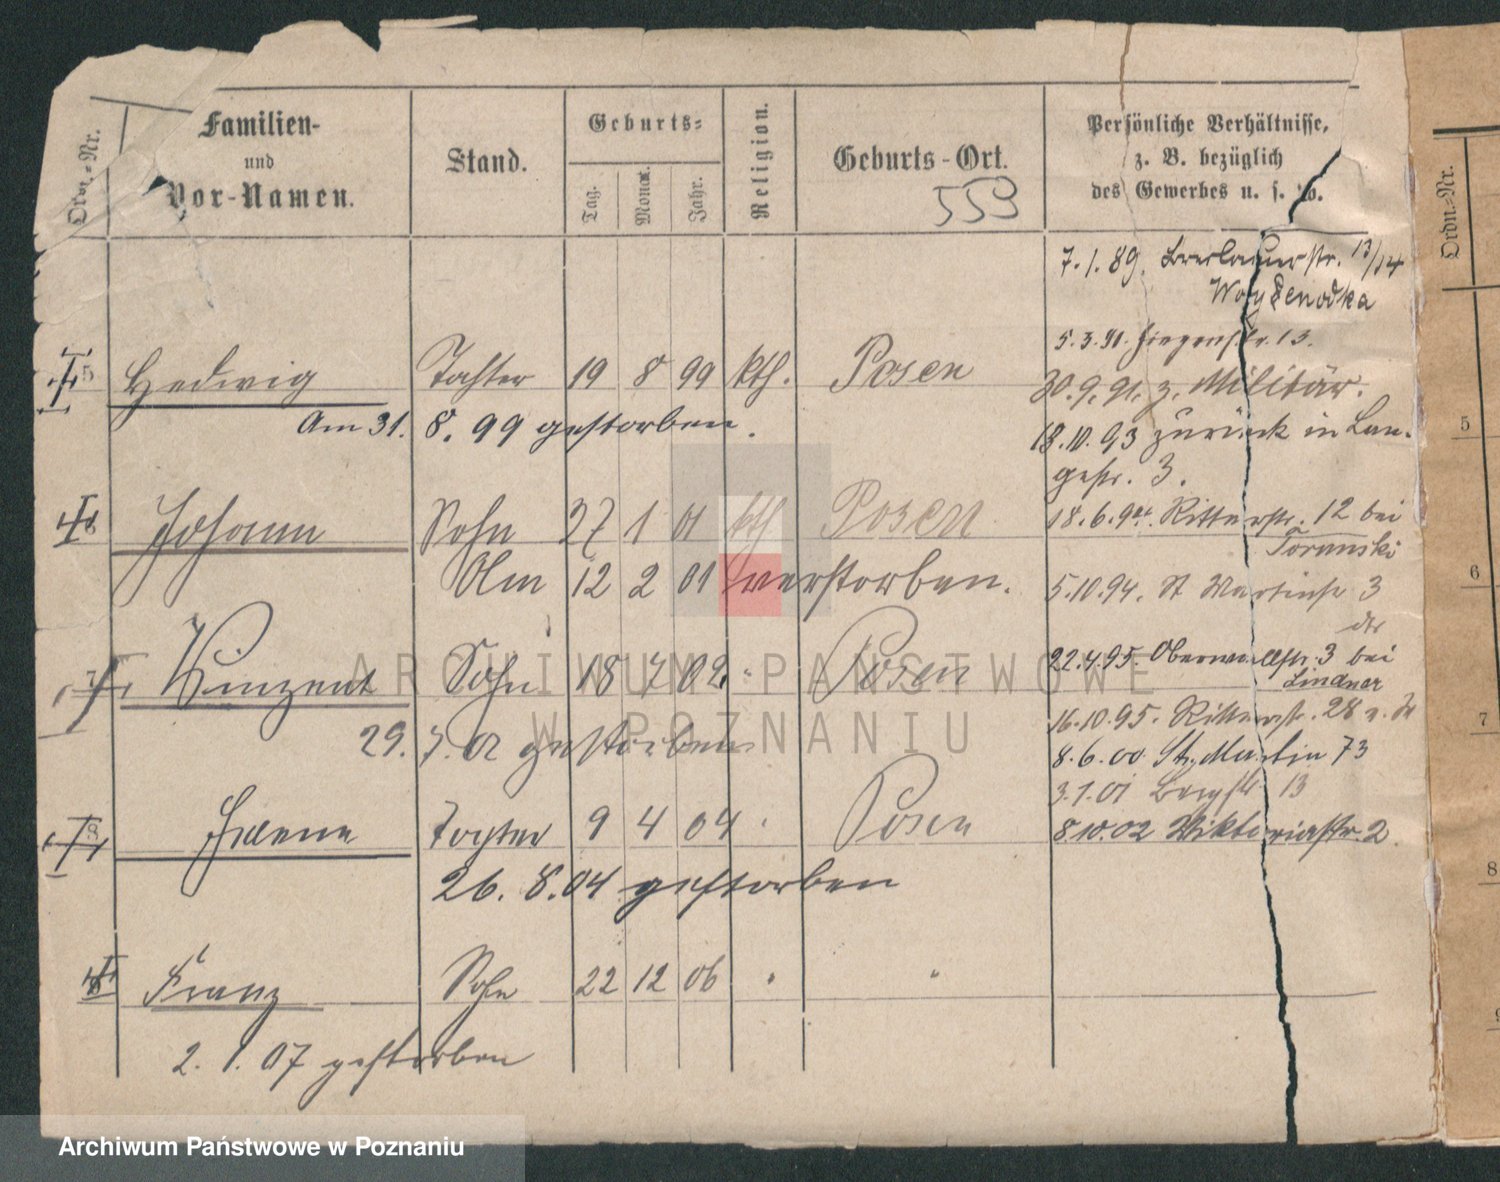 Ordn.-Nr.
Familien-
und
Vor-Namen.
Stand.
Geburts-
Tag.
Monat.
Jahr.
Religion.
Geburts-Ort.
559
Persönliche Verhältnisse,
z. B. bezüglich
des Gewerbes u. s. w.
7.1.89. Breslauerstr. 13/14
5.3.91. 13.
5 Hedwig Tochter 19 8 99 kth. Posen
30.9.91. z. Militär.
Am 31. 8. 99 gestorben.
18.10.93 zurück in Lan-
gestr. 3.
6 Johann Sohn 27 1 01 kth Posen
18.6.94. Ritterstr. 12 bei
Toruński
Am 12 2 01 verstorben.
5.10.94. St Martinstr 3
7 Vinzent Sohn 18 7 02 " Posen
22.4.95. Oberwallstr. 3 bei
Lindner
16.10.95. Ritterstr. 28
29. 7. 02 gestorben
8.6.00 St. Martin 73
3.1.01 Bergstr 13
8 Irene Tochter 9 4 04 " Posen
8.10.02 Viktoriastr. 2.
26. 8. 04 gestorben
Franz Sohn 22 12 06 " "
2. 1. 07 gestorben
Ordn.-Nr.
5
6
7
8
9
ARCHIWUM PAŃSTWOWE
W POZNANIU
Archiwum Państwowe w Poznaniu